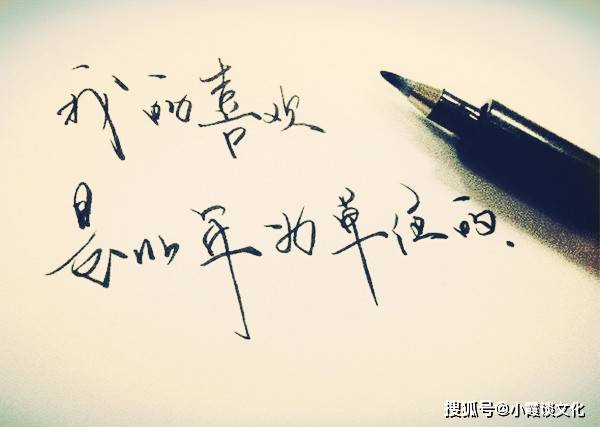 我的喜欢
是以年为单位的.
搜狐号@小霞谈文化